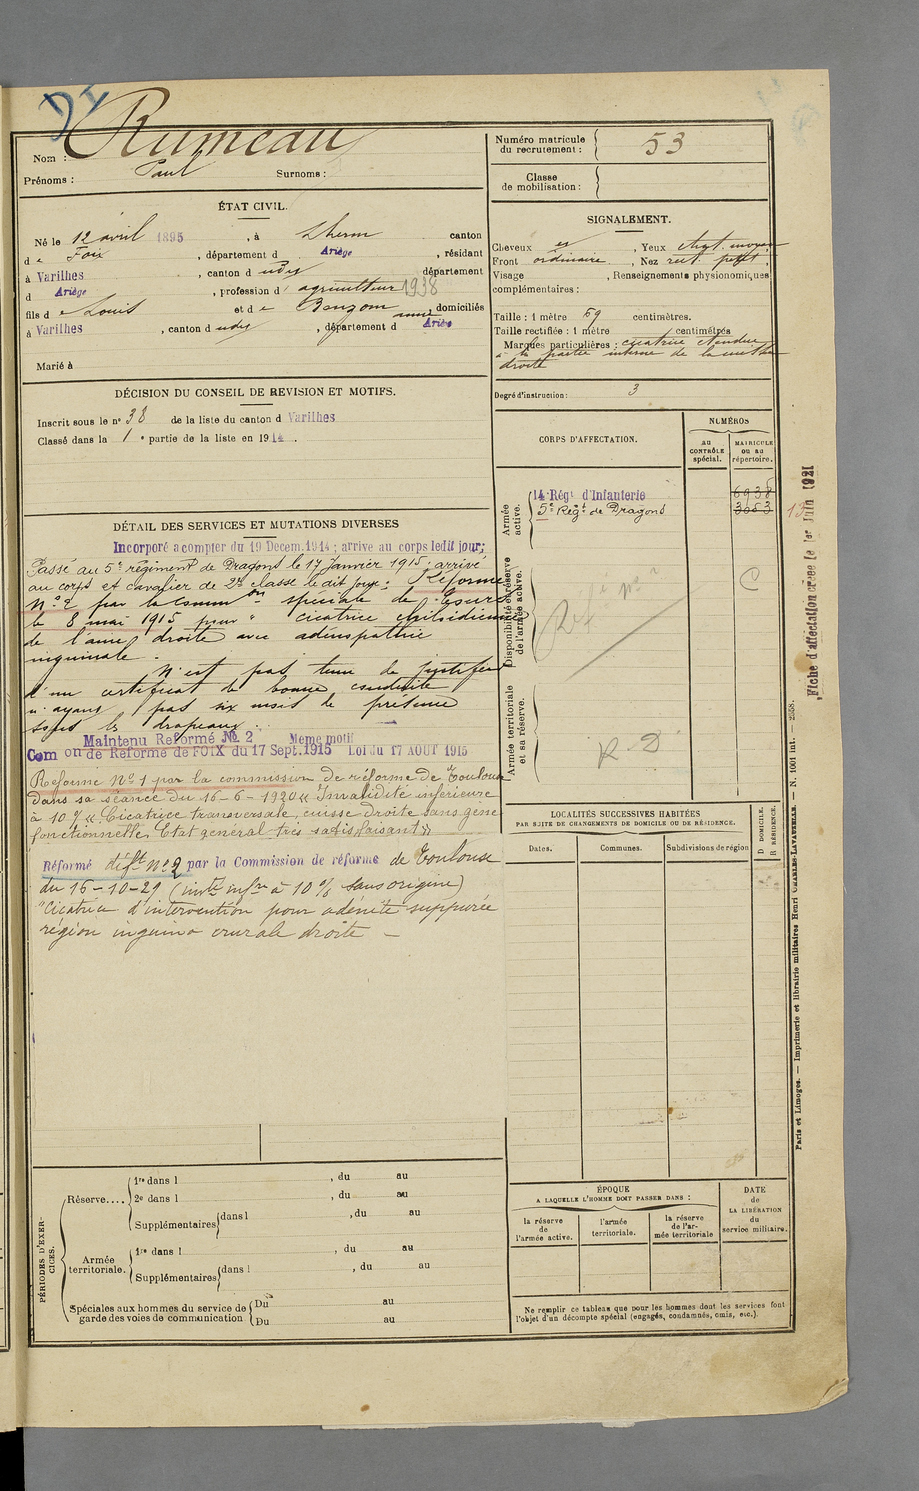 DI
Nom : Rumeau
Prénoms : Paul Surnoms :
ÉTAT CIVIL.
Né le 12 avril 1895, à Lherm canton
de Foix, département d Ariège, résidant
à Varilhes, canton d udy département
d Ariège, profession d'agriculteur 1938
fils de Louis et de domiciliés
à Varilhes, canton d udy, département d Ariège
Marié à
DÉCISION DU CONSEIL DE REVISION ET MOTIFS.
Inscrit sous le nº 38 de la liste du canton d Varilhes
Classé dans la 1e partie de la liste en 1914.
DÉTAIL DES SERVICES ET MUTATIONS DIVERSES
Incorporé a compter du 19 Decem. 1914; arrive au corps ledit jour;
Passé au 5e régiment de Dragons le 17 Janvier 1915; arrivé
au corps et cavalier de 2e classe ledit jour. Réformé
Nº 2 par la Common spéciale de Tours
le 8 mai 1915 pour cicatrice
de l'aine droite avec adénopathie
inguinale.
N'est pas tenu de justifier
d'un certificat de bonne conduite
n'ayant pas six mois de présence
sous les drapeaux.
Maintenu Reformé No. 2 Meme motif
Com on de Reforme de FOIX du 17 Sept. 1915 Loi du 17 AOUT 1915
Réforme Nº 1 par la commission de réforme de Toulouse
dans sa séance du 16-6-1920 « Invalidité inférieure
à 10 % « Cicatrice transversale, cuisse droite sans gêne
fonctionnelle, Etat général très satisfaisant »
Réformé déft nº 2 par la Commission de réforme de Toulouse
du 16-10-21 (invté infre à 10 % sans origine)
"Cicatrice d'intervention pour adénite suppurée
région inguino crurale droite —
PÉRIODES D'EXERCICES.
Réserve.... 1re dans l , du au
2e dans l , du au
Supplémentaires dans l , du au
Armée territoriale. 1re dans l , du au
Supplémentaires dans l , du au
Spéciales aux hommes du service de garde des voies de communication Du au
Du au
Numéro matricule du recrutement : 53
Classe de mobilisation :
SIGNALEMENT.
Cheveux , Yeux chat. moyen
Front ordinaire, Nez rect. petit.
Visage , Renseignements physionomiques
complémentaires :
Taille : 1 mètre 69 centimètres.
Taille rectifiée : 1 mètre centimètres
Marques particulières : cicatrice étendue
à la partie interne de la cuisse
droite
Degré d'instruction : 3
CORPS D'AFFECTATION.
NUMÉROS
au CONTRÔLE spécial.
MATRICULE ou au répertoire.
Armée active.
14 Régt d'Infanterie 6938
5e Régt de Dragons 3053
13
Disponibilité et réserve de l'armée active.
Réf nº 2
C
Armée territoriale et sa réserve.
R.D
LOCALITÉS SUCCESSIVES HABITÉES
PAR SUITE DE CHANGEMENTS DE DOMICILE OU DE RÉSIDENCE.
Dates. Communes. Subdivisions de région
D DOMICILE.
R RÉSIDENCE.
ÉPOQUE
A LAQUELLE L'HOMME DOIT PASSER DANS :
la réserve de l'armée active.
l'armée territoriale.
la réserve de l'armée territoriale
DATE de LA LIBÉRATION du service militaire.
Ne remplir ce tableau que pour les hommes dont les services font
l'objet d'un décompte spécial (engagés, condamnés, omis, etc.).
Fiche d'affectation créée le 1er Juin 1921
Paris et Limoges. — Imprimerie et librairie militaires Henri CHARLES-LAVAUZELLE. — N. 1001 int. —